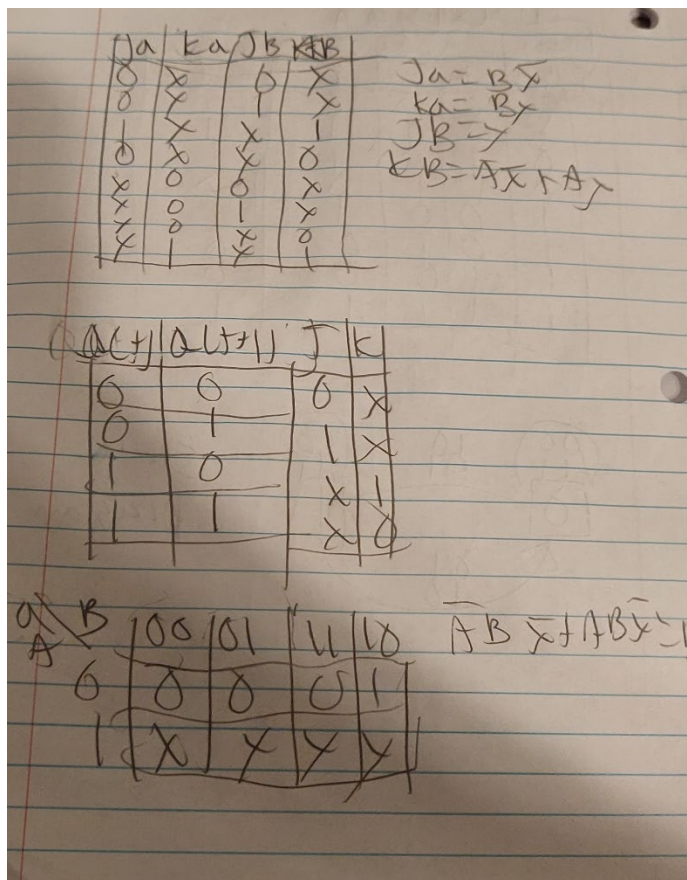 Ja | Ka | JB | KB
0 | X | 0 | X
0 | X | 1 | X
1 | X | X | 1
0 | X | X | 0
X | 0 | 0 | X
X | 0 | 1 | X
X | 0 | X | 0
X | 1 | X | 1
Ja = B x̄
Ka = Bx
JB = x
KB = A x̄ + A
Q(t) | Q(t+1) | J | K
0 | 0 | 0 | X
0 | 1 | 1 | X
1 | 0 | X | 1
1 | 1 | X | 0
A \ B | 00 | 01 | 11 | 10
0 | 0 | 0 | 0 | 1
1 | X | X | X | X
A̅B x̄ + AB x̄ =